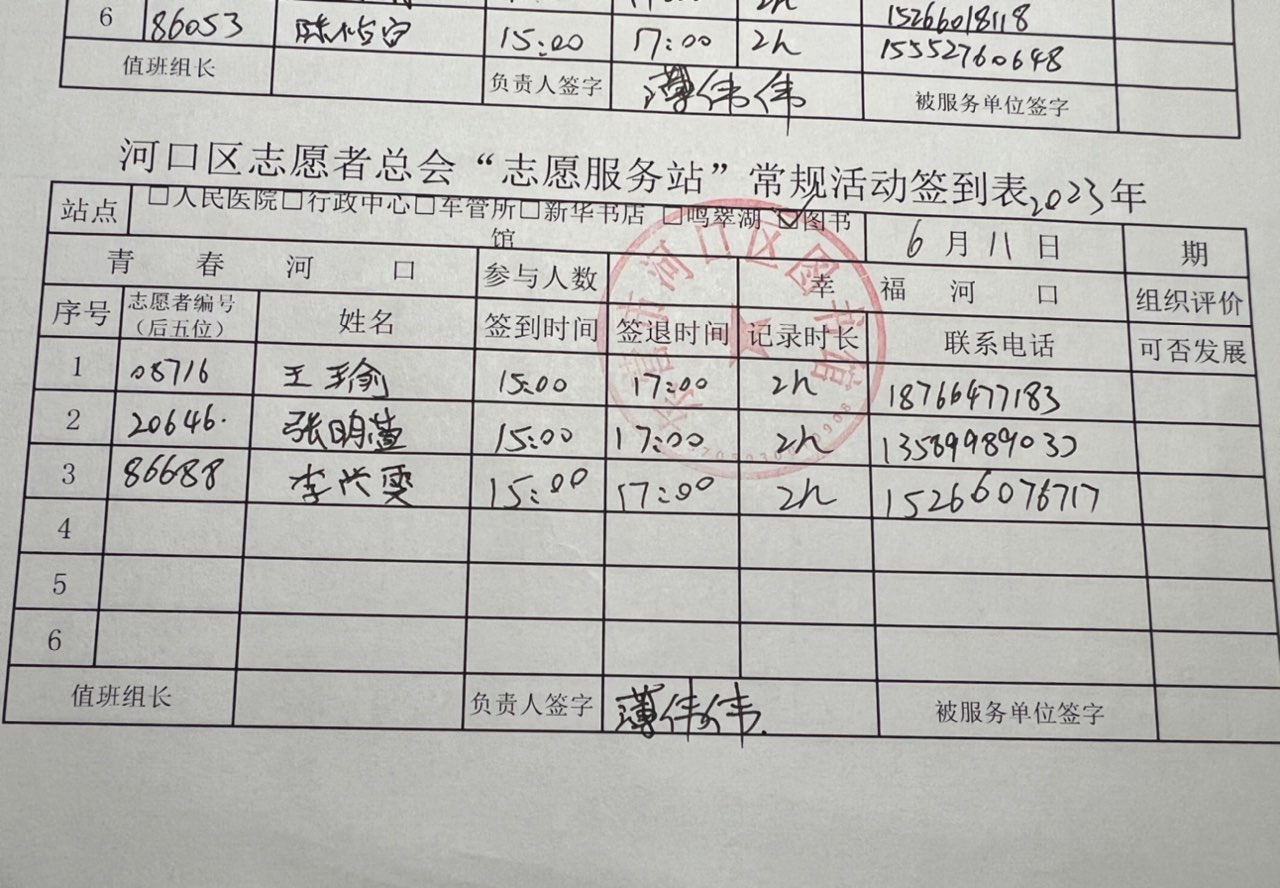 2h 15266018118
6 86053 陈怡白 15:00 17:00 2h 15552760648
值班组长 负责人签字 薄伟伟 被服务单位签字
河口区志愿者总会“志愿服务站”常规活动签到表2023年
站点 □人民医院□行政中心□车管所□新华书店 □鸣翠湖 ☑图书馆 6月11日 期
青春河口 参与人数 幸福河口 组织评价
序号 志愿者编号（后五位） 姓名 签到时间 签退时间 记录时长 联系电话 可否发展
1 08716 王瑜 15:00 17:00 2h 18766477183
2 20646. 张明萱 15:00 17:00 2h 13589989037
3 86688 李兴雯 15:00 17:00 2h 15266076717
4
5
6
值班组长 负责人签字 薄伟伟. 被服务单位签字
东营市河口区图书馆